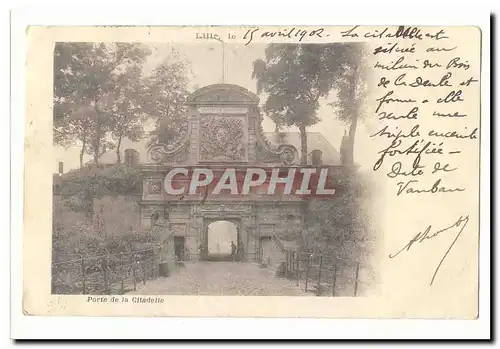 Lille, le 15 avril 1902. La citadelle est
située au
milieu du Bois
de la Deule et
forme à elle
seule une
triple enceinte
fortifiée –
Date de
Vauban
CAPHIL
Porte de la Citadelle